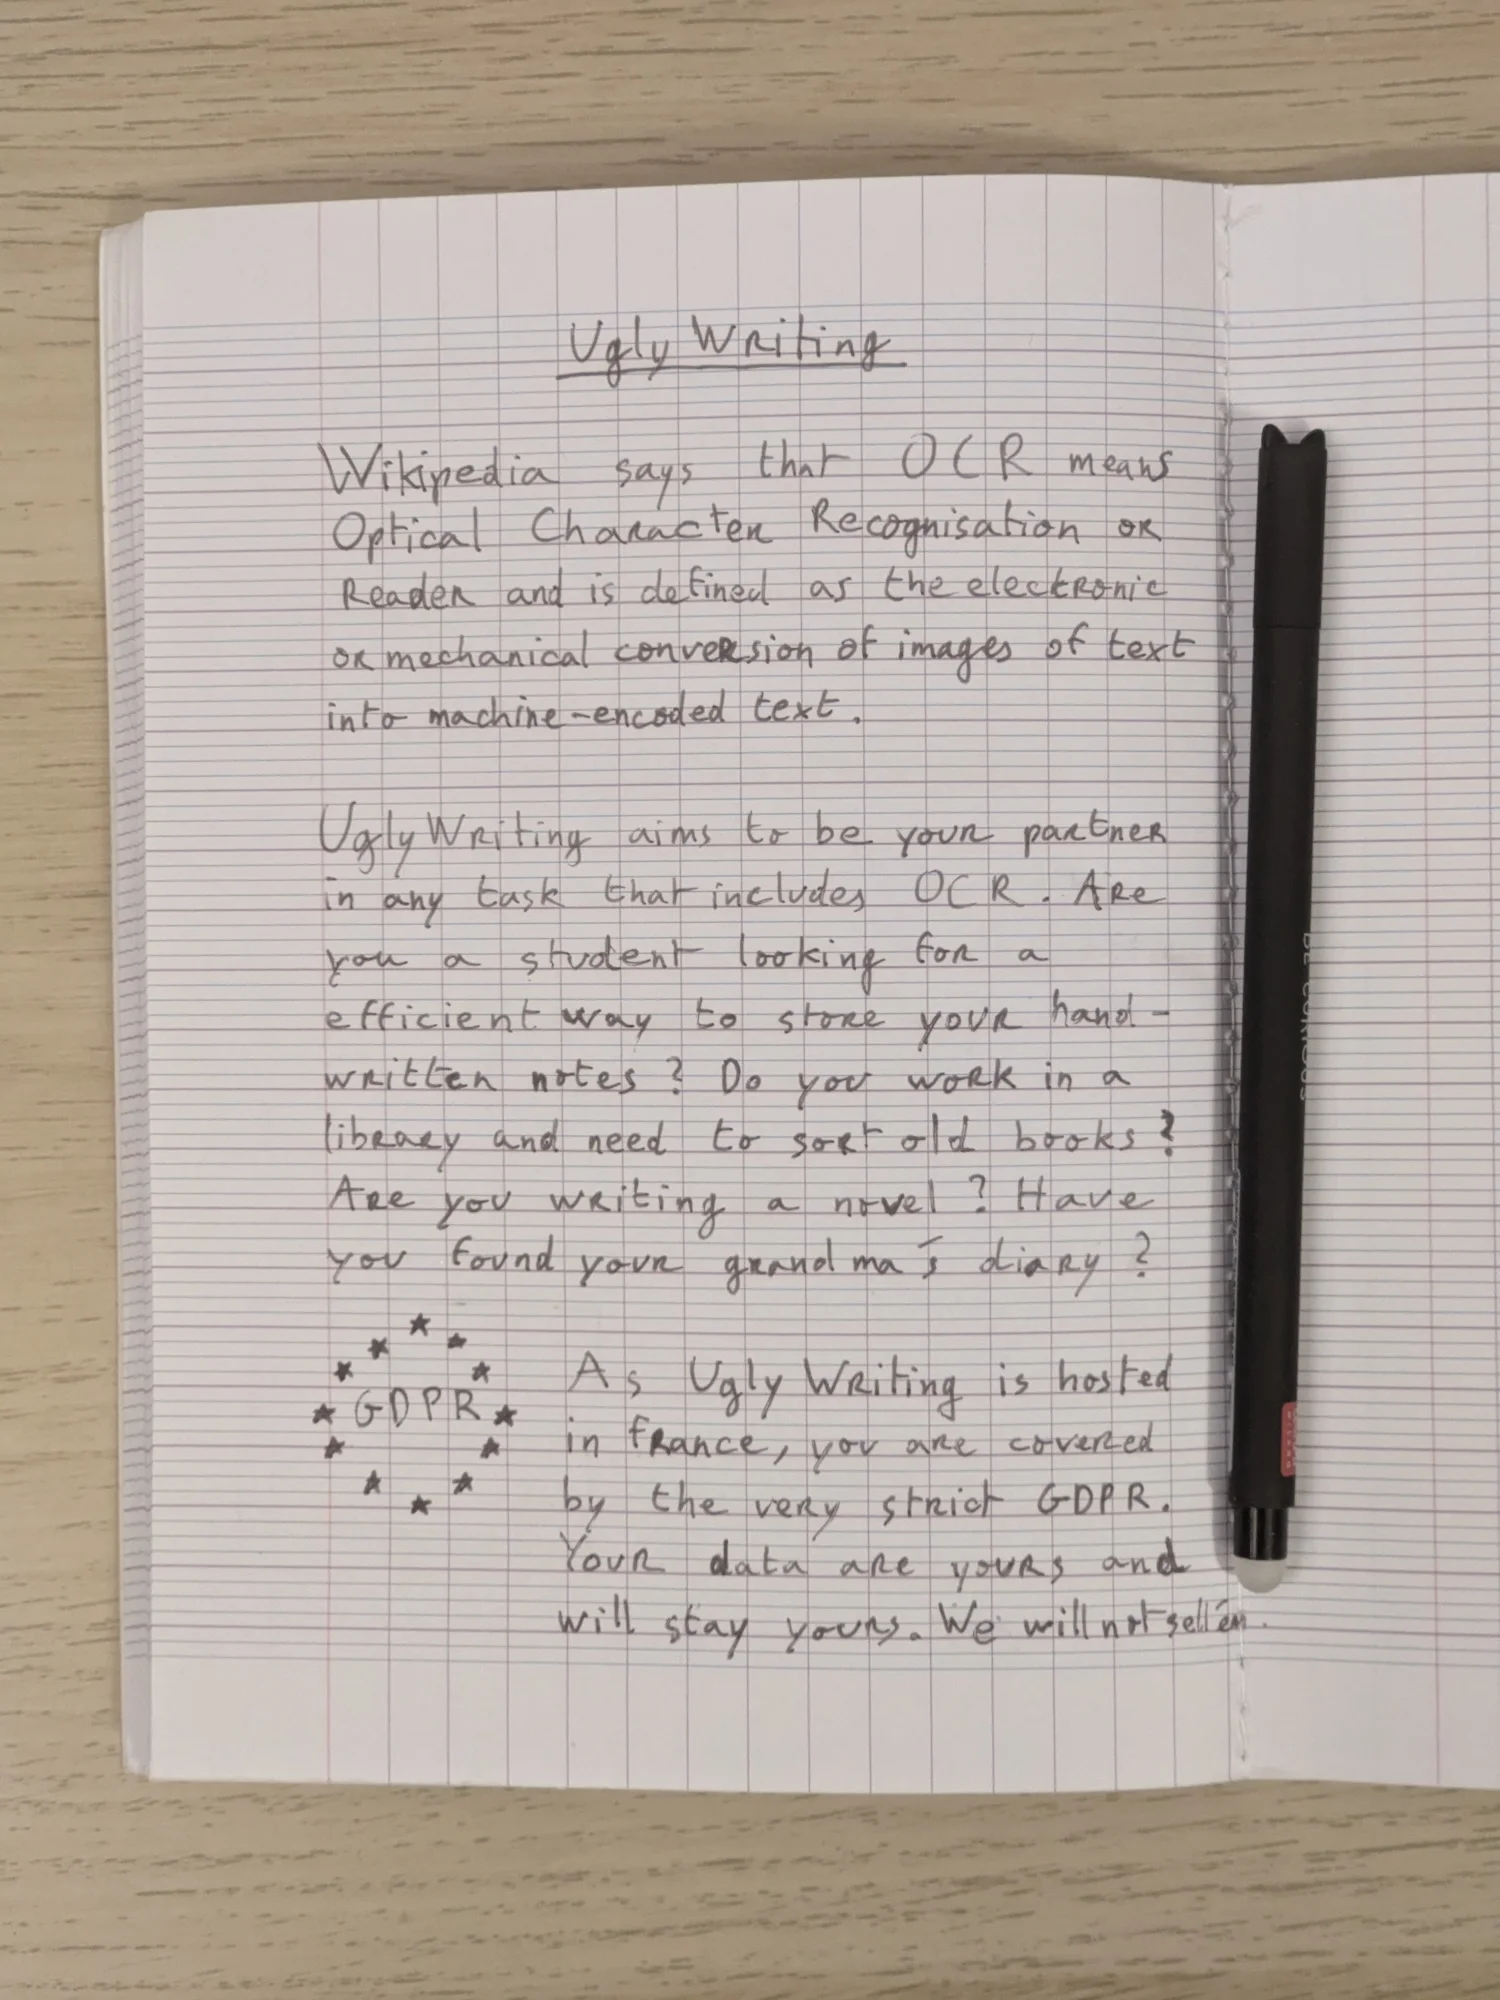 Ugly Writing
Wikipedia says that OCR means
Optical Character Recognisation or
Reader and is defined as the electronic
or mechanical conversion of images of text
into machine-encoded text.
Ugly Writing aims to be your partner
in any task that includes OCR. Are
you a student looking for a
efficient way to store your hand-
written notes? Do you work in a
library and need to sort old books?
Are you writing a novel? Have
you found your grandma's diary?
GDPR
As Ugly Writing is hosted
in france, you are covered
by the very strict GDPR.
Your data are yours and
will stay yours. We will not sell
BE CURIOUS